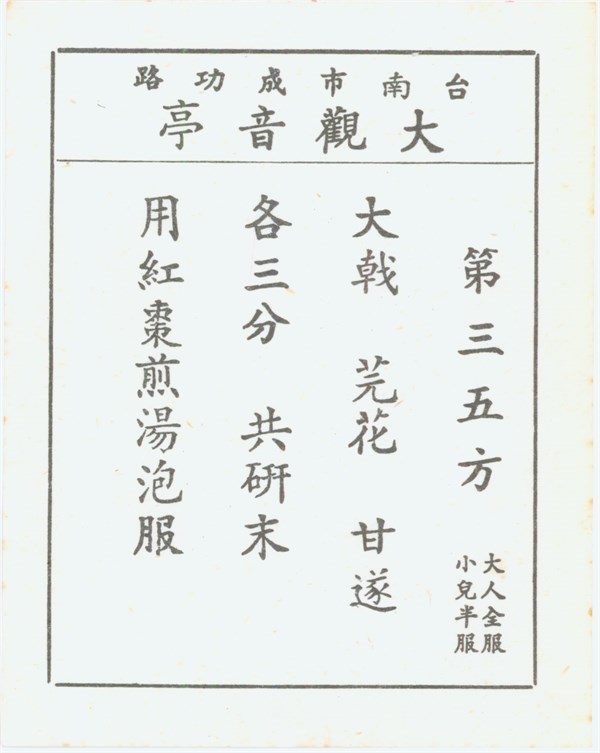 台南市成功路
大觀音亭
第三五方
大人全服
小兒半服
大戟 芫花 甘遂
各三分 共研末
用紅棗煎湯泡服